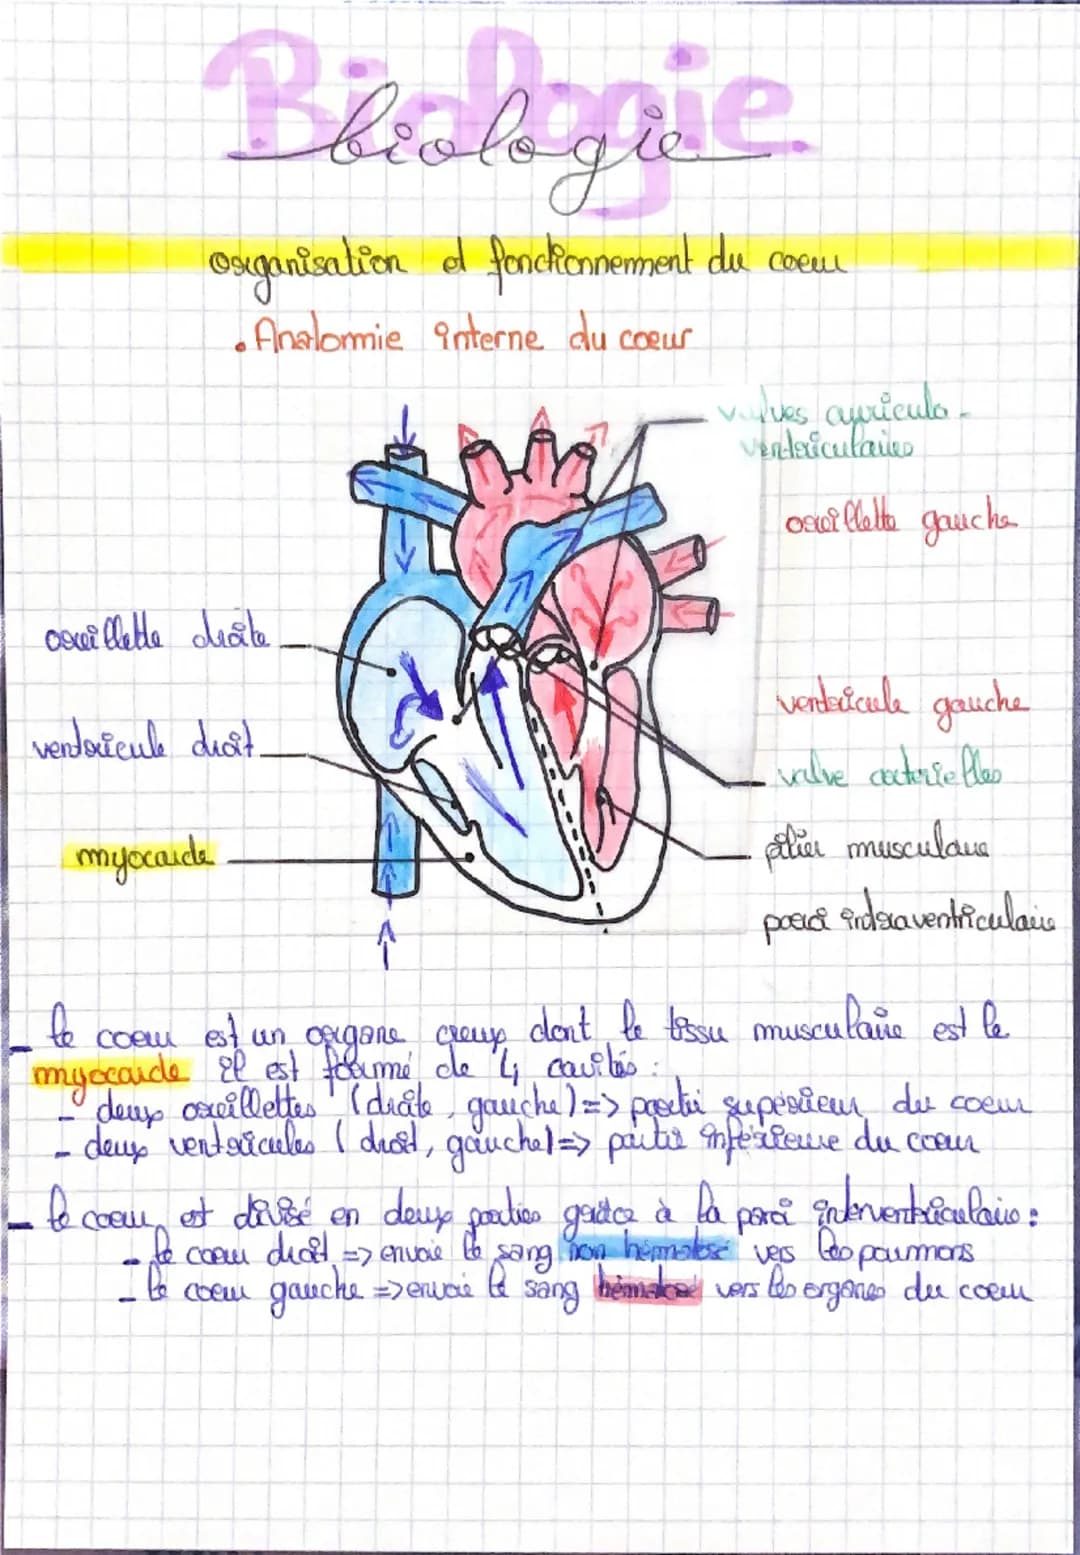 Biologie.
biologie
organisation et fonctionnement du coeur
• Anatomie interne du coeur
valves auriculo-
ventriculaires
oreillette gauche
oreillette droite
ventricule gauche
ventricule droit
valve arterielles
myocarde
pilier musculaire
paroi intraventriculaire
- le coeur est un organe creux dont le tissu musculaire est le
myocarde il est formé de 4 cavités :
- deux oreillettes (droite, gauche) => partie supérieur du coeur
- deux ventricules (droit, gauche) => partie inférieure du coeur
- le coeur est divisé en deux parties grâce à la paroi interventriculaire :
- le coeur droit => envoie le sang non hématosé vers les poumons
- le coeur gauche => envoie le sang hématosé vers les organes du coeur